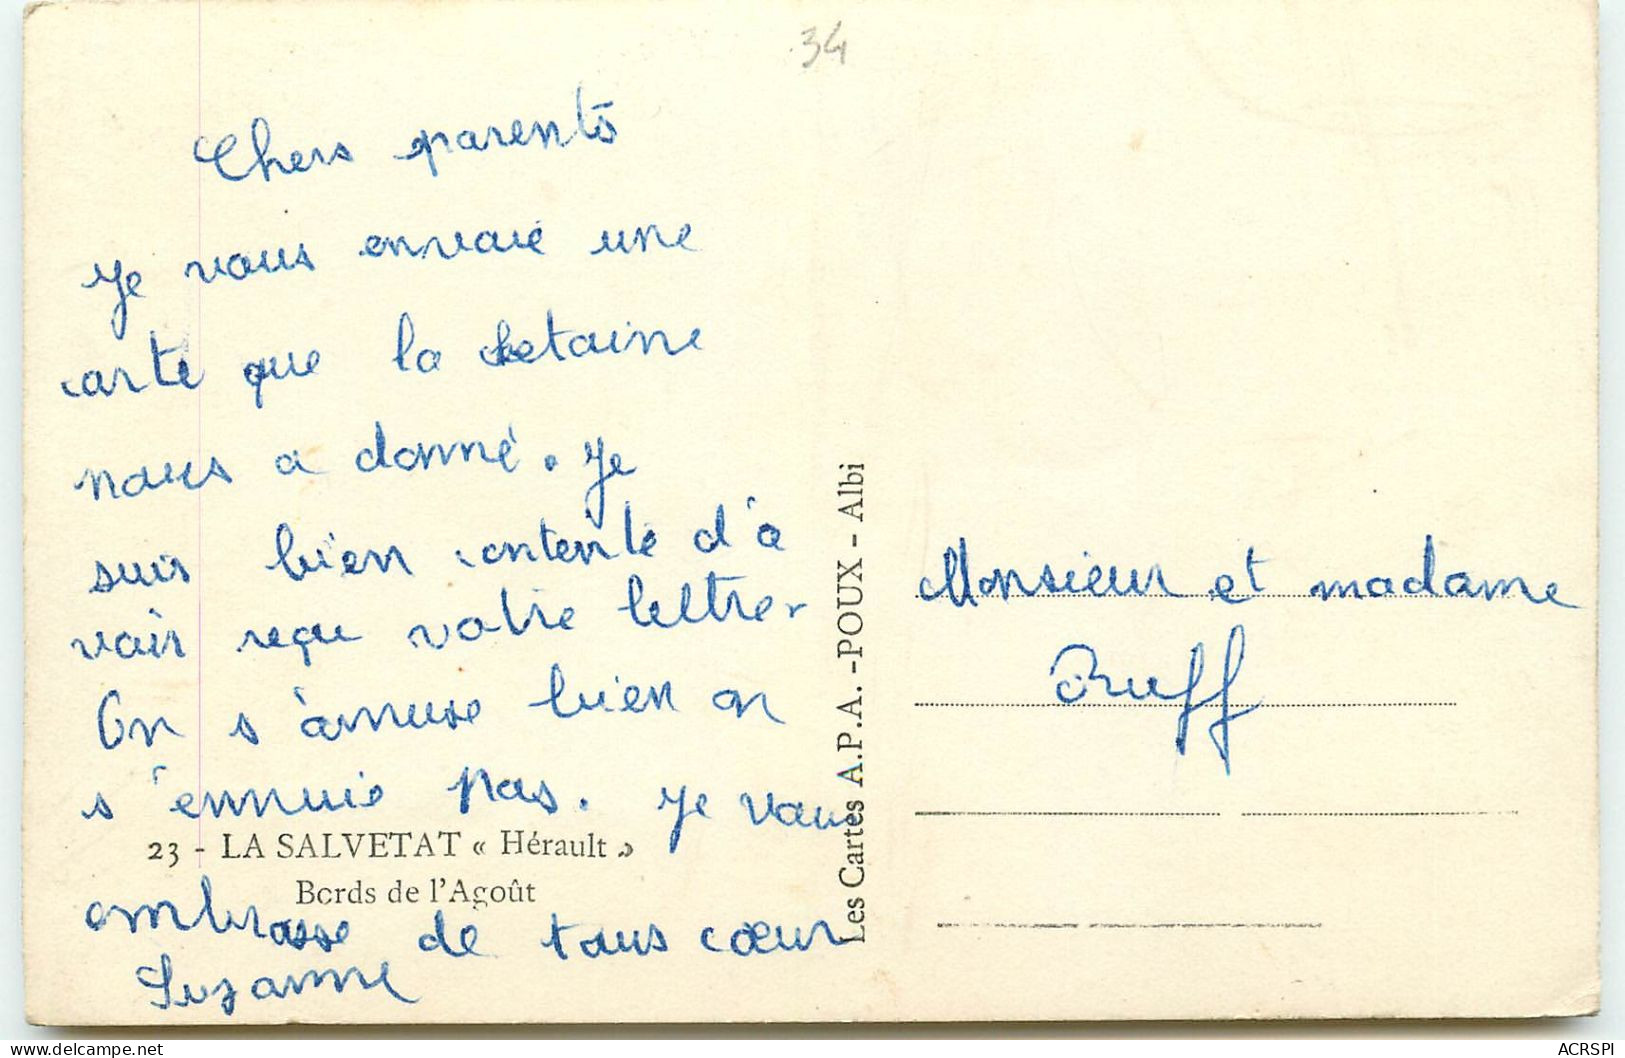 34
Chers parents
Je vous envoie une
carte que la
nous a donné. Je
suis bien contente d'a
voir reçu votre lettre.
On s'amuse bien on
s'ennuie pas. Je vous
23 - LA SALVETAT « Hérault »
Bords de l'Agoût
embrasse de tous cœur
Suzanne
Les Cartes A.P.A. -POUX - Albi
Monsieur et madame
Ruff
delcampe.net
ACRSPI